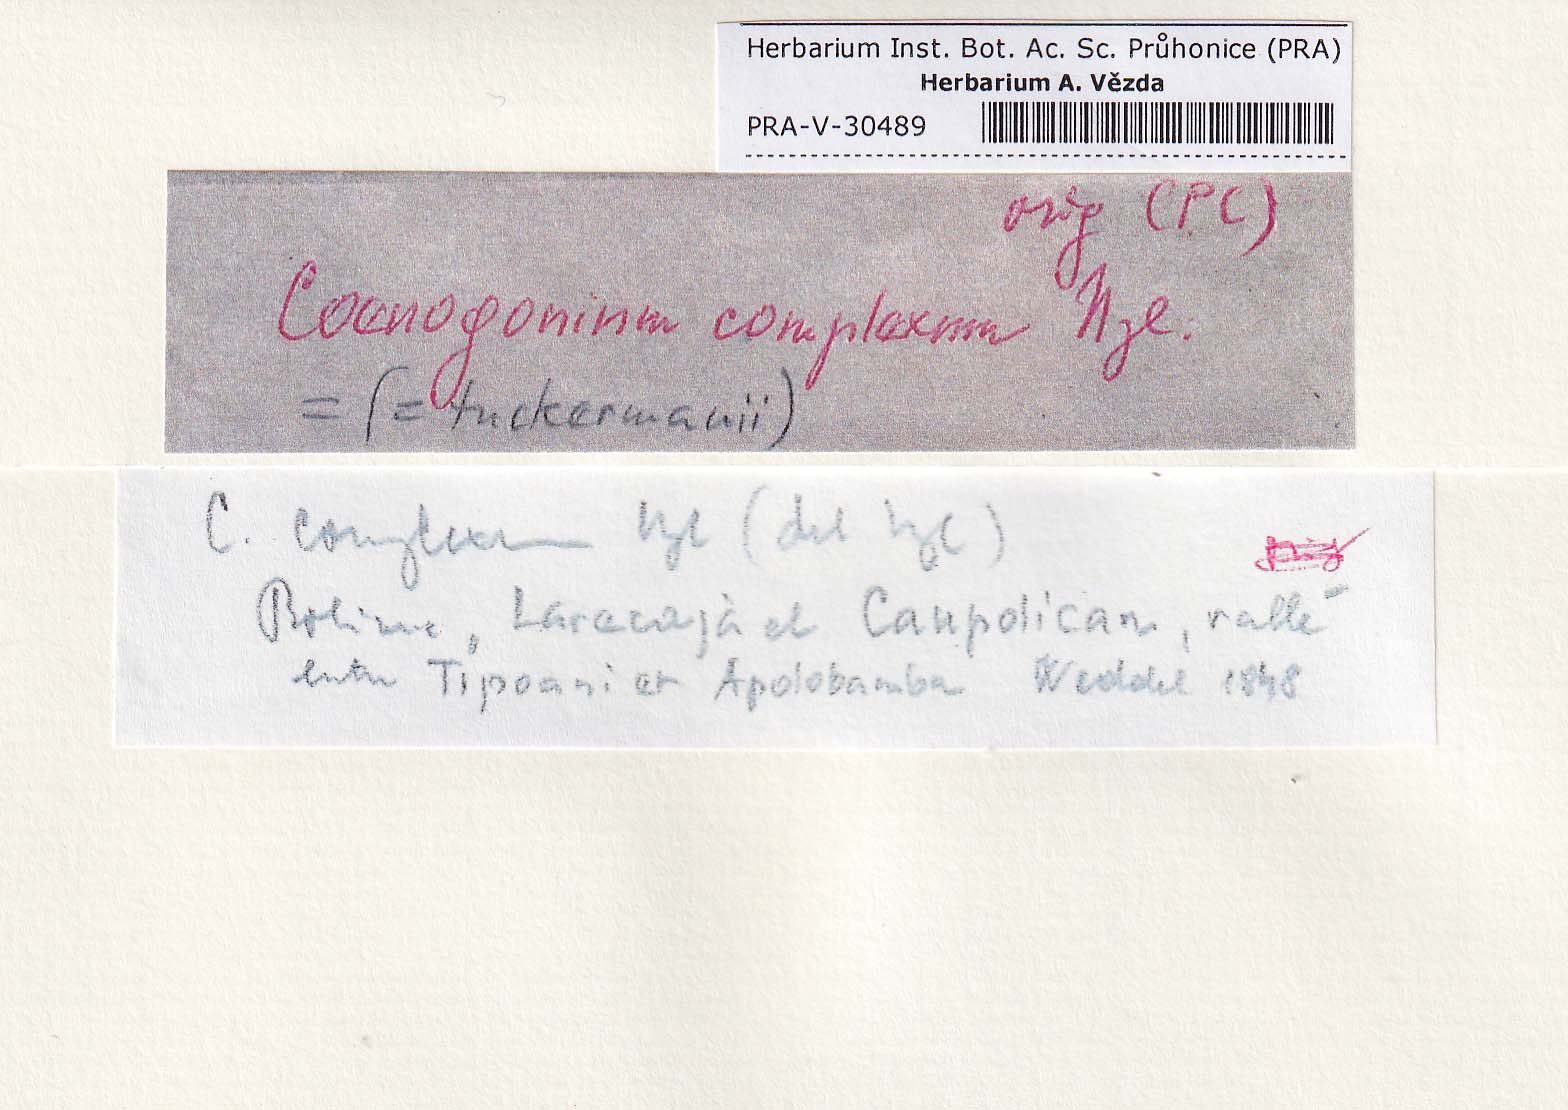 Herbarium Inst. Bot. Ac. Sc. Průhonice (PRA)
Herbarium A. Vězda
PRA-V-30489
orig (PC)
Coenogonium complexum Nyl.
= (= tuckermanii)
C. complexum Nyl (det Nyl)
Bolivie, Larecaja et Caupolican, vallé
entre Tipoani et Apolobamba Weddel 1848